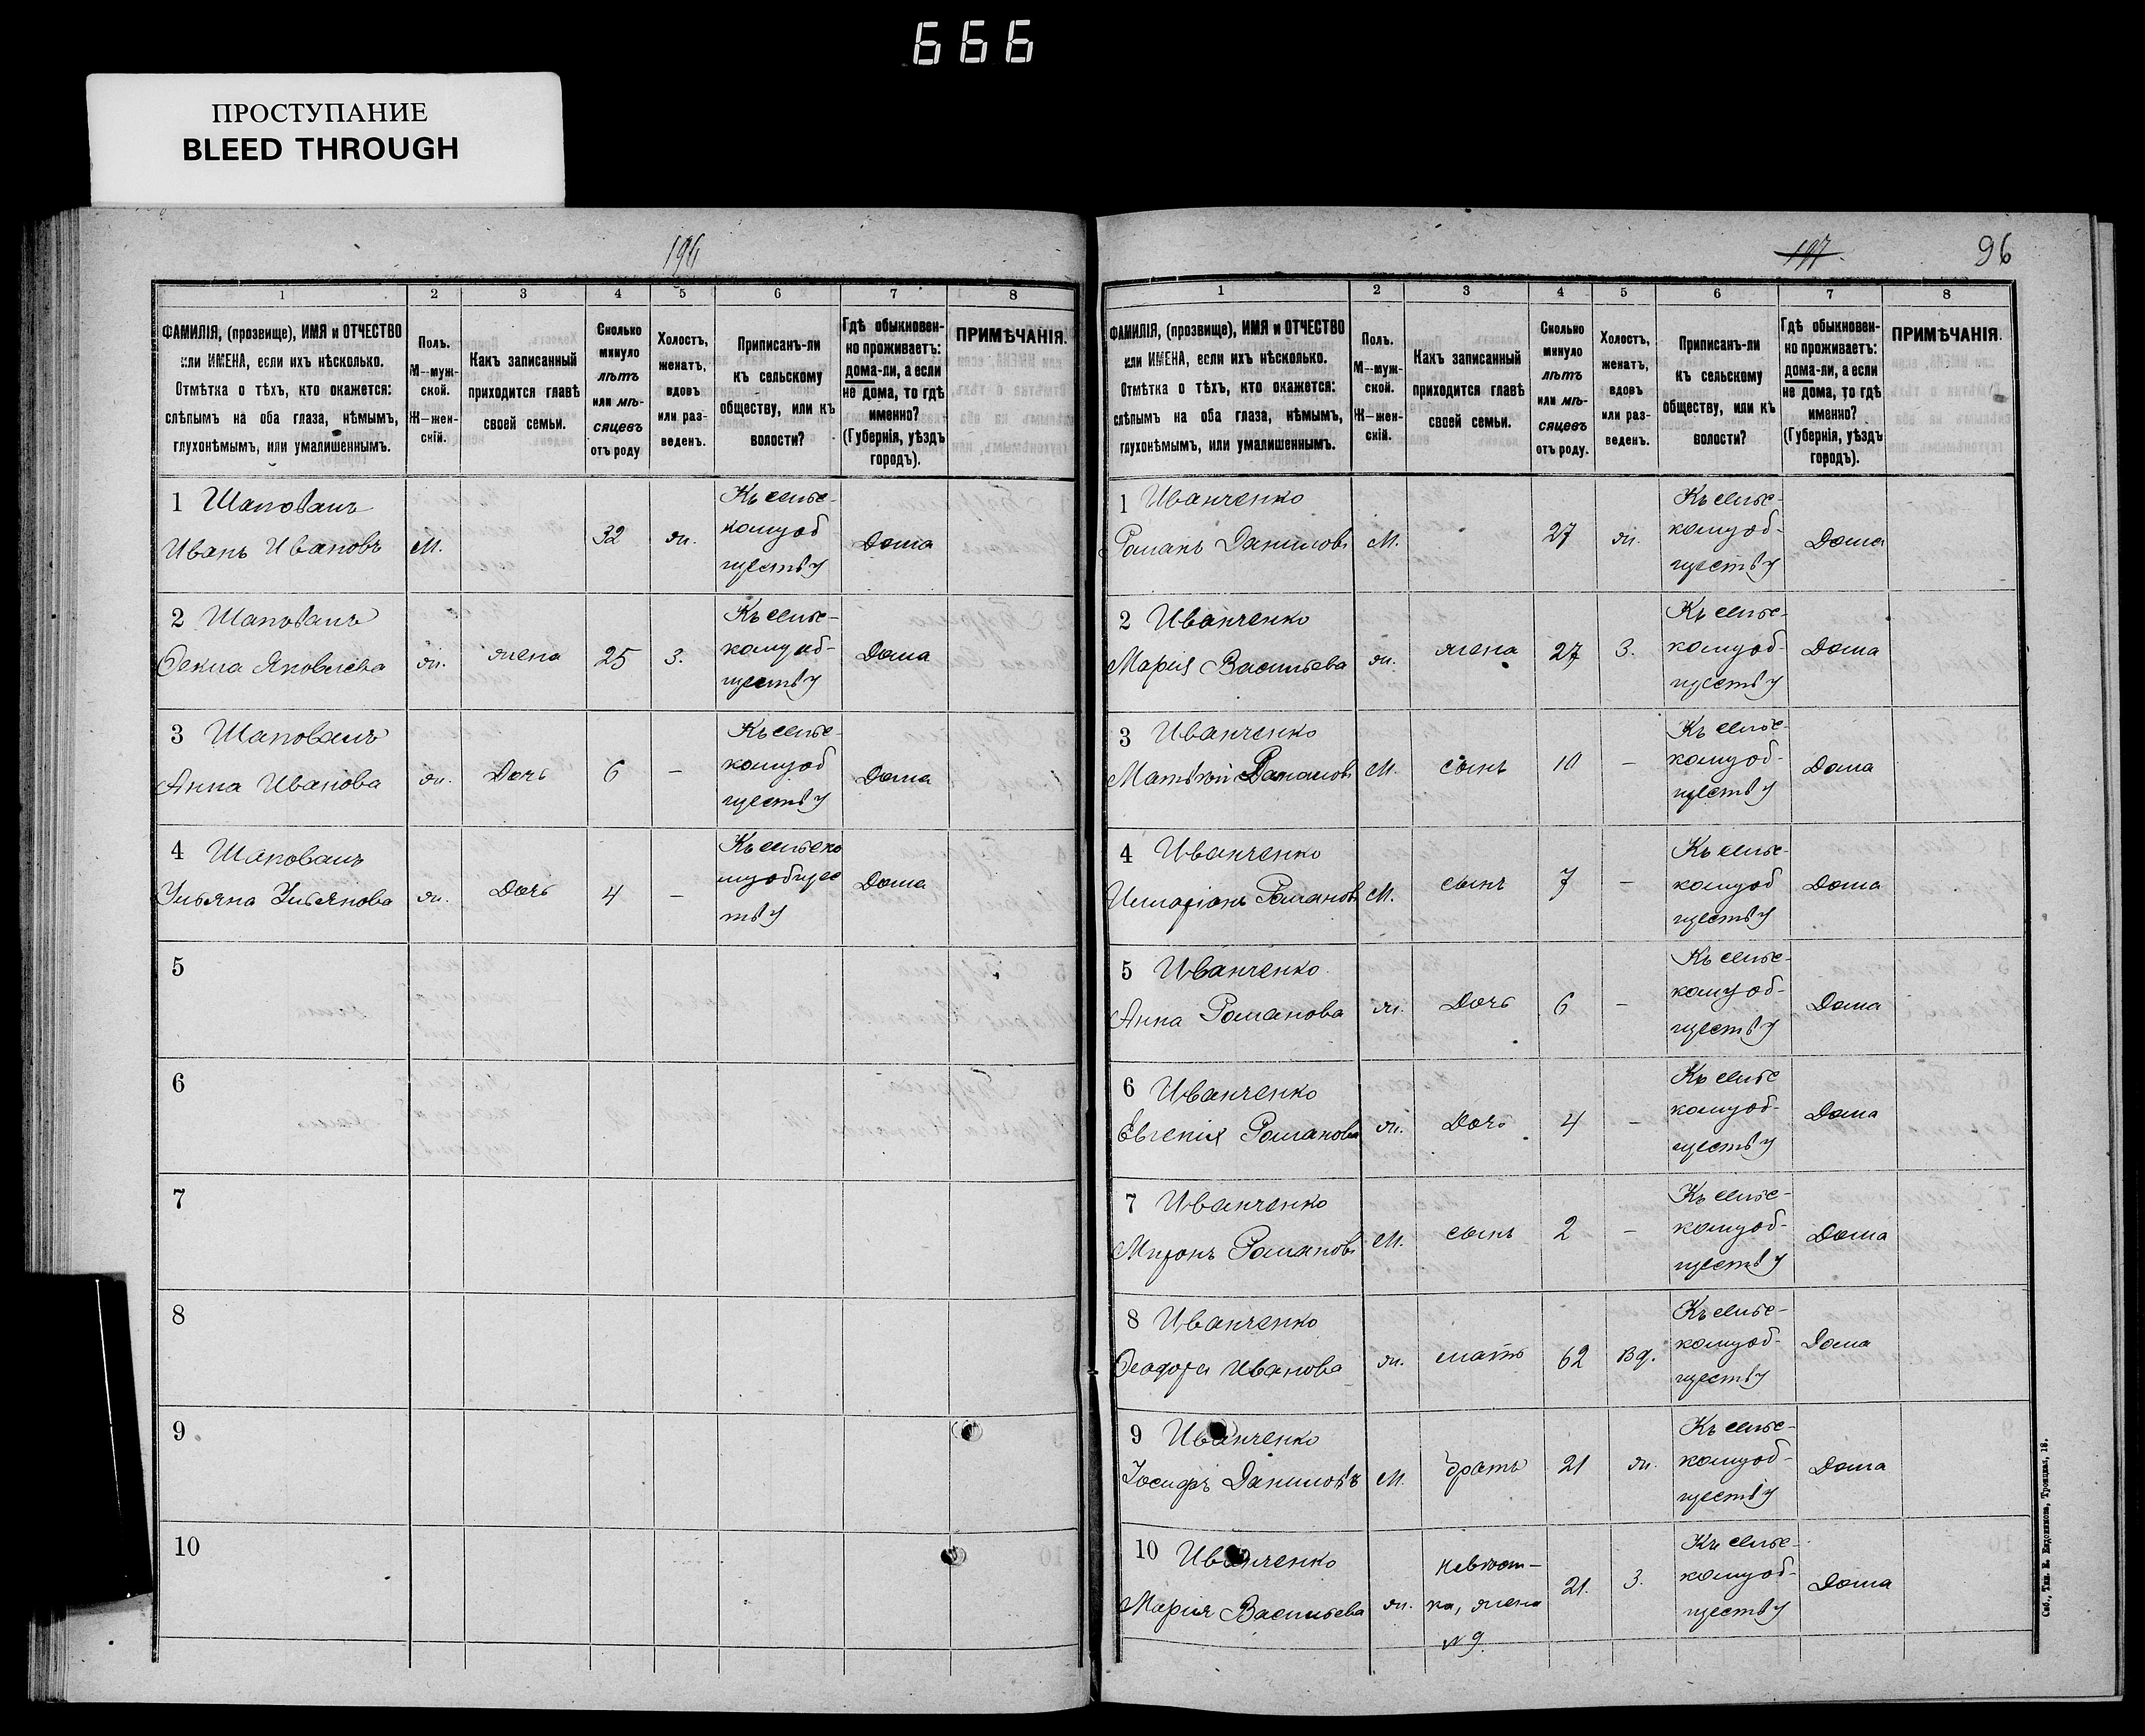 666
ПРОСТУПАНИЕ
BLEED THROUGH
194
1 2 3 4 5 6 7 8
ФАМИЛІЯ, (прозвище), ИМЯ и ОТЧЕСТВО
или ИМЕНА, если ихъ нѣсколько.
Отмѣтка о тѣхъ, кто окажется:
слѣпымъ на оба глаза, нѣмымъ,
глухонѣмымъ, или умалишеннымъ.
Полъ.
М—муж-
ской.
Ж—жен-
скій.
Какъ записанный
приходится главѣ
своей семьи.
Сколько
минуло
лѣтъ
или мѣ-
сяцевъ
отъ роду
Холостъ,
женатъ,
вдовъ
или раз-
веденъ.
Приписанъ-ли
къ сельскому
обществу, или къ
волости?
Гдѣ обыкновен-
но проживаетъ:
дома-ли, а если
не дома, то гдѣ
именно?
(Губернія, уѣздъ
городъ).
ПРИМѢЧАНІЯ.
1 Шаповалъ
Иванъ Ивановъ М. 32 ж. Къ сельс-
кому об
ществу Дома
2 Шаповалъ
Ѳекла Яковлева ж. жена 25 З. Къ сельс-
кому об-
ществу Дома
3 Шаповалъ
Анна Иванова ж. Дочь 6 — Къ сельс-
кому об
ществу Дома
4 Шаповалъ
Ульяна Ульянова ж. Дочь 4 — Къ сельско
му общес
тву Дома
5
6
7
8
9
10
197 96
1 2 3 4 5 6 7 8
ФАМИЛІЯ, (прозвище), ИМЯ и ОТЧЕСТВО
или ИМЕНА, если ихъ нѣсколько.
Отмѣтка о тѣхъ, кто окажется:
слѣпымъ на оба глаза, нѣмымъ,
глухонѣмымъ, или умалишеннымъ.
Полъ.
М—муж-
ской.
Ж—жен-
скій.
Какъ записанный
приходится главѣ
своей семьи.
Сколько
минуло
лѣтъ
или мѣ-
сяцевъ
отъ роду.
Холостъ,
женатъ,
вдовъ
или раз-
веденъ.
Приписанъ-ли
къ сельскому
обществу, или къ
волости?
Гдѣ обыкновен-
но проживаетъ:
дома-ли, а если
не дома, то гдѣ
именно?
(Губернія, уѣздъ
городъ).
ПРИМѢЧАНІЯ.
1 Иванченко
Романъ Даниловъ М. 27 ж. Къ сельс-
кому об-
ществу Дома
2 Иванченко
Марія Васильева ж. жена 27 З. Къ сельс-
кому об-
ществу Дома
3 Иванченко
Матвѣй М. сынъ 10 — Къ сельс-
кому об-
ществу Дома
4 Иванченко
Илларіонъ Романовъ М. сынъ 7 — Къ сельс-
кому об
ществу Дома
5 Иванченко
Анна Романова ж. Дочь 6 — Къ сельс-
кому об-
ществу Дома
6 Иванченко
Евгенія Романова ж. Дочь 4 — Къ сельс
кому об-
ществу Дома
7 Иванченко
Миронъ Романовъ М. сынъ 2 — Къ сельс-
кому об-
ществу Дома
8 Иванченко
Ѳеодора Иванова ж. мать 62 вд. Къ сельс-
кому об-
ществу Дома
9 Иванченко
Іосифъ Даниловъ М. братъ 21 ж. Къ сельс-
кому об-
ществу Дома
10 Иванченко
Марія Васильева ж. невѣст-
ка, жена
№ 9 21. З. Къ сельс-
кому об-
ществу Дома